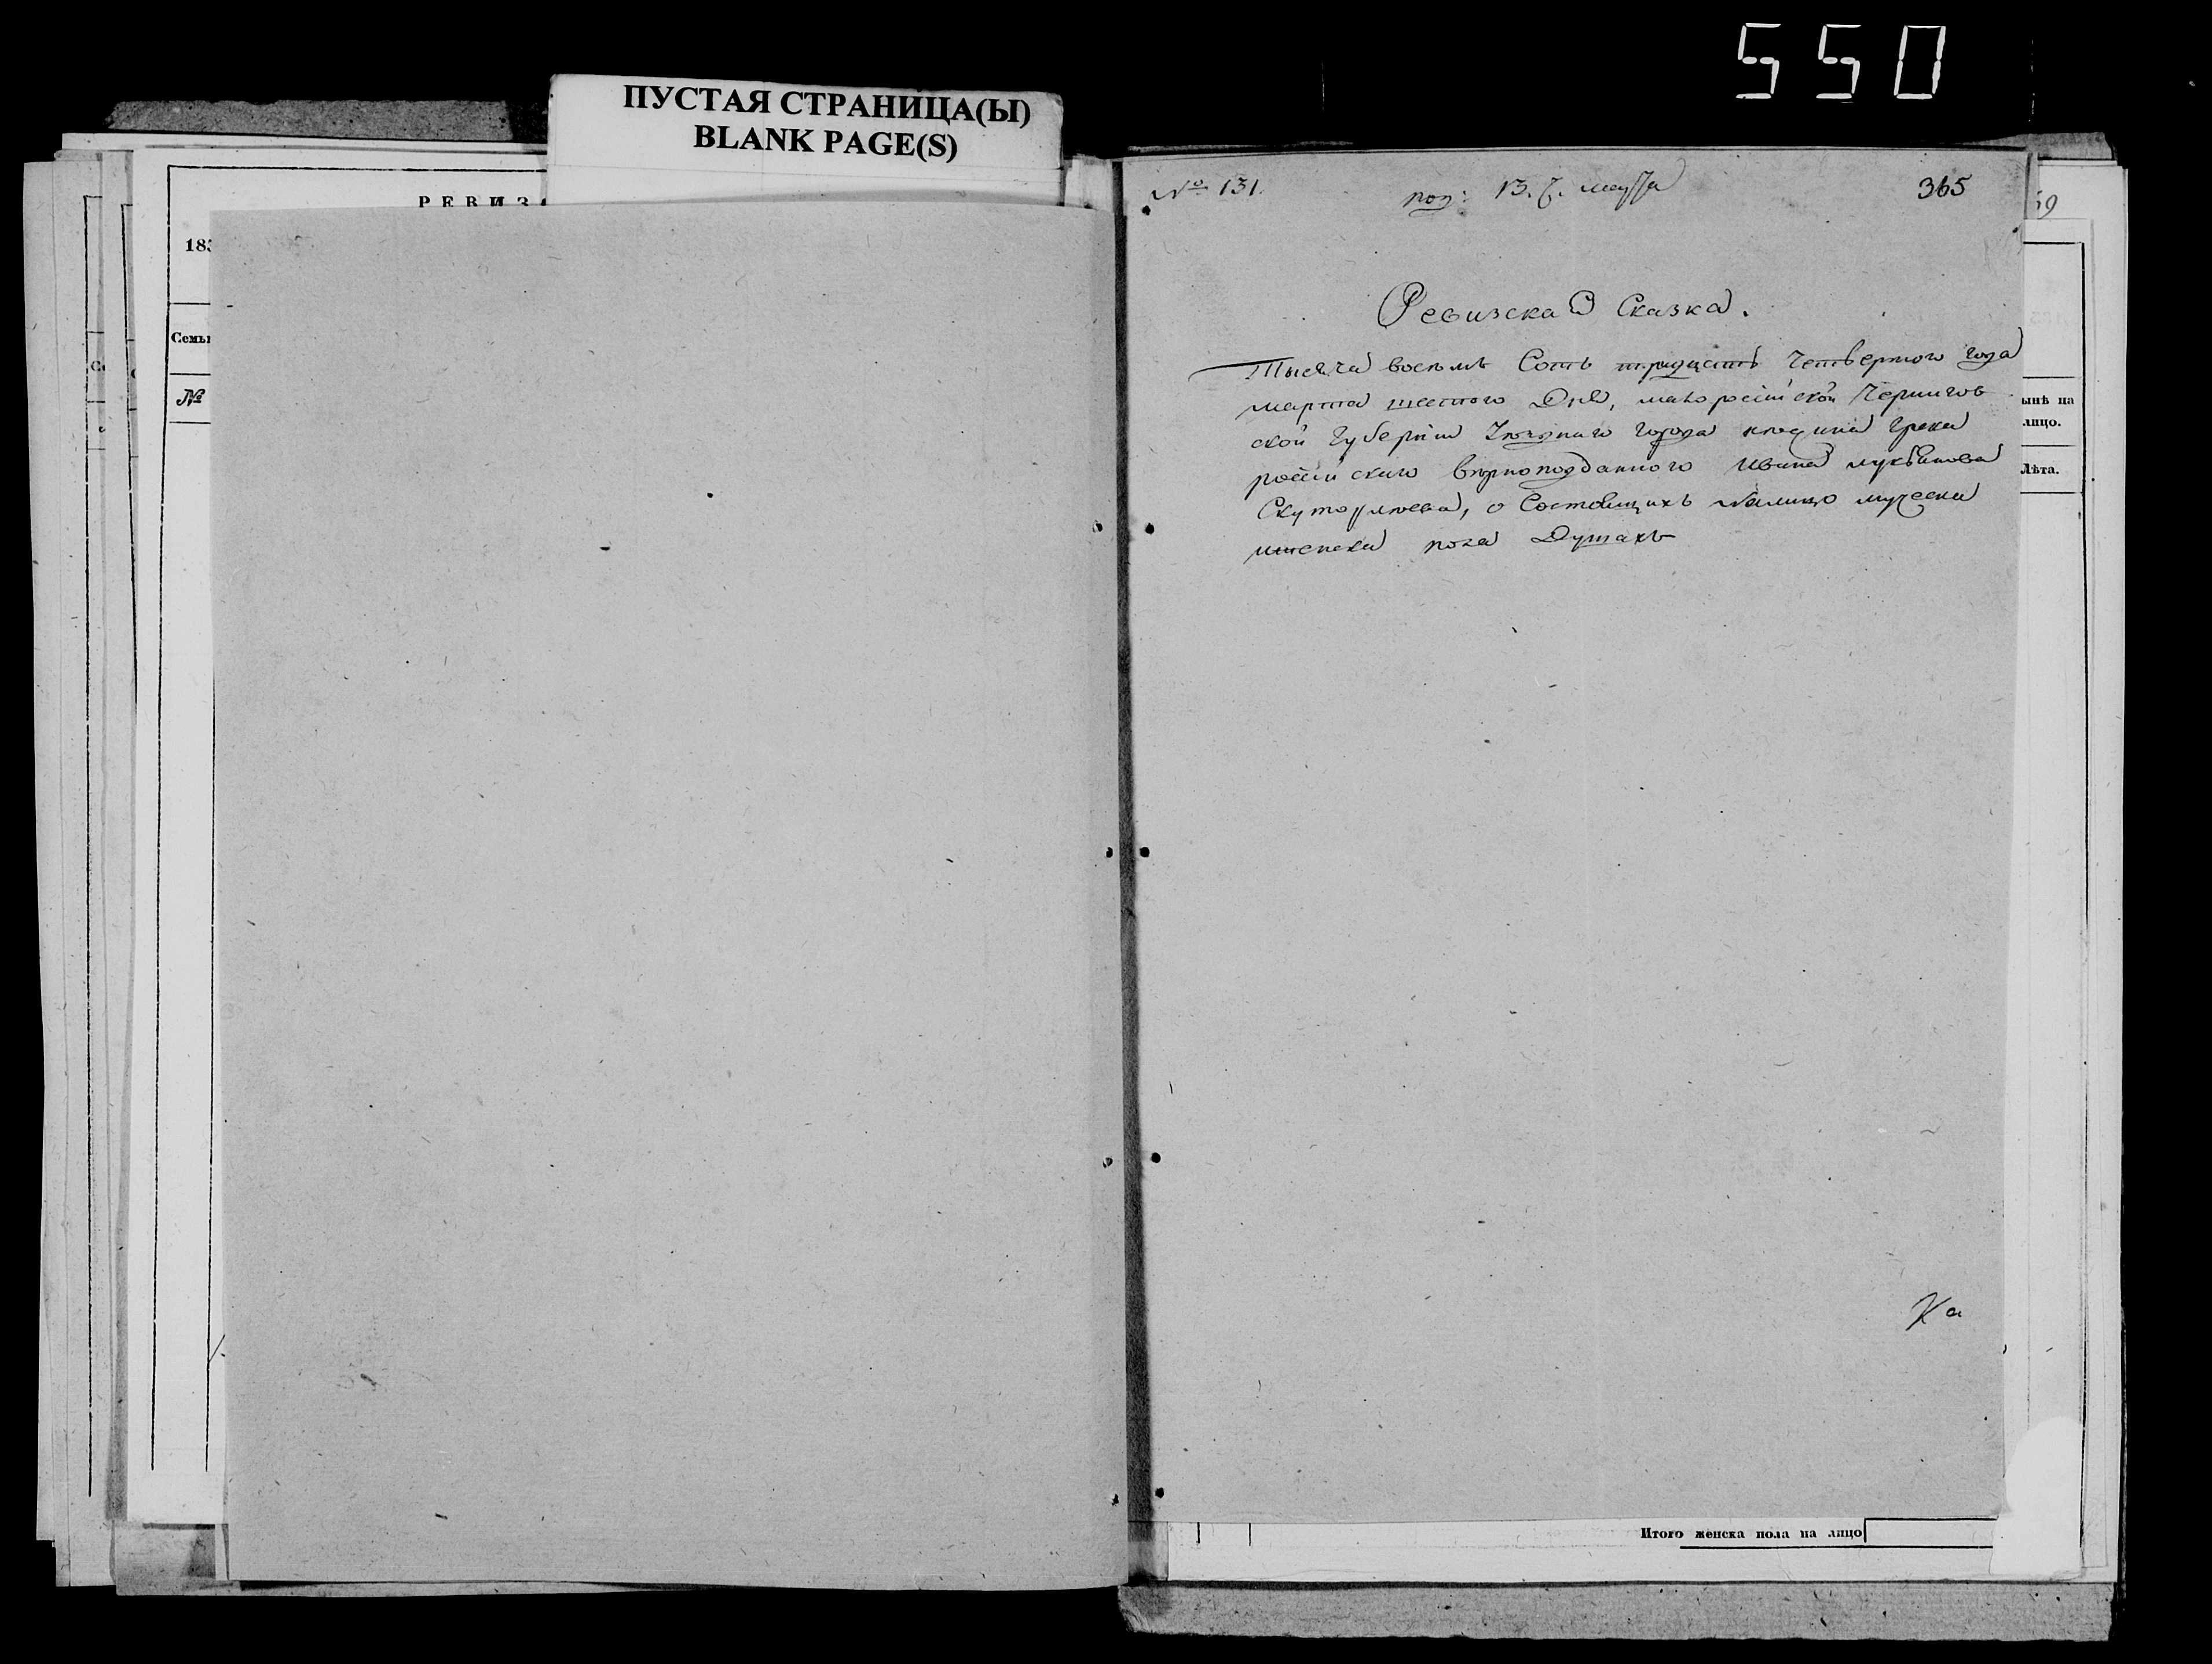 550
ПУСТАЯ СТРАНИЦА(Ы)
BLANK PAGE(S)
РЕВИЗ
183
Семь
№
№ 131.
пол: 13. марта
365
59
Ревизская Сказка.
Тысяча восемь Сотъ тридцать Четвертого года
марта шестого Дня, малороссійской Чернигов
ской Губерніи города нежина Грека
россійскаго вернопод­данного Ивана
о Состоящихъ налицо мужеска
и женска пола Душахъ
ынѣ на
лицо.
Лѣта.
Ка
Итого женска пола на лицо